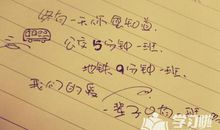 终有一天你要知道.
公交5分钟一班.
地铁9分钟一班.
我们的爱
一辈子只有一班.
学习啦